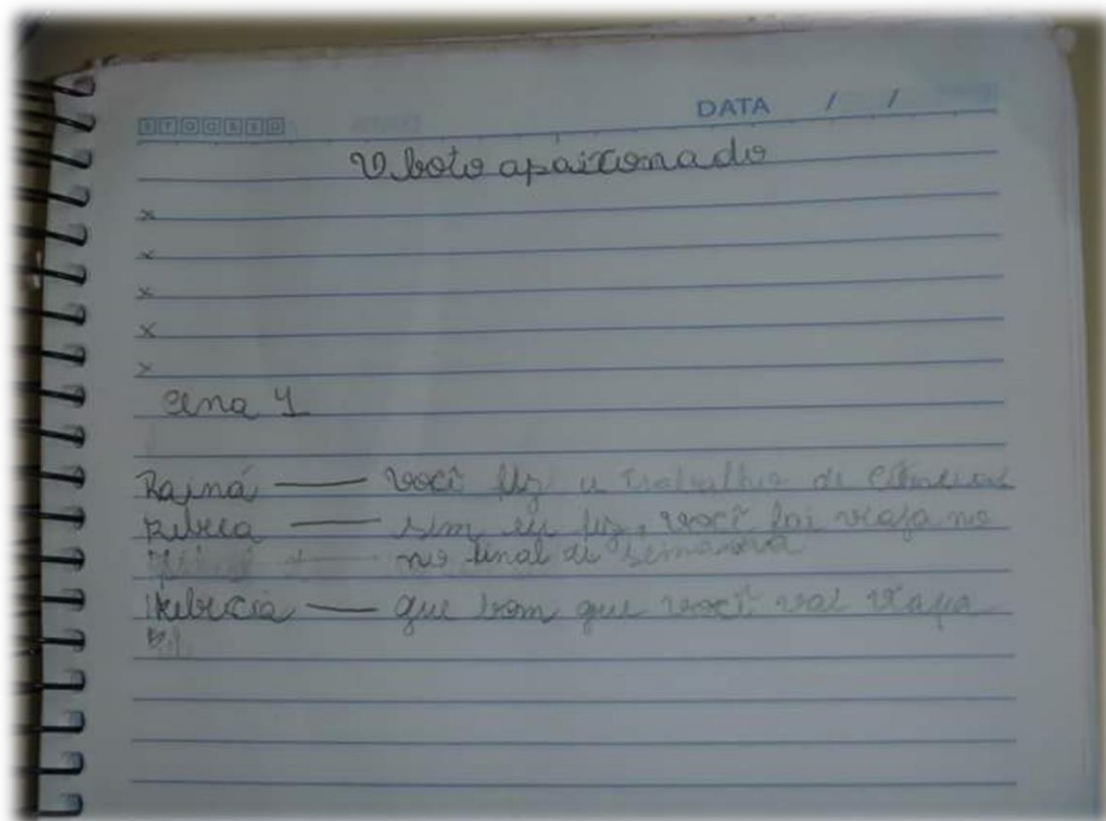 DATA / /
S T Q Q S S D
O boto apaixonado
x
x
x
x
x
cena 1
Rainá — você fez u trabalho de
Rebeca — sim eu fiz, você foi viaja no
no final di semana
— que bom que você vai viaja